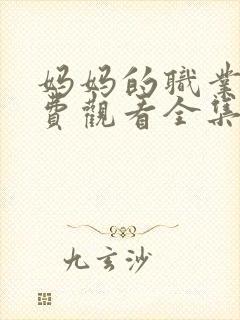 妈妈的職業
費觀看全集
九玄沙